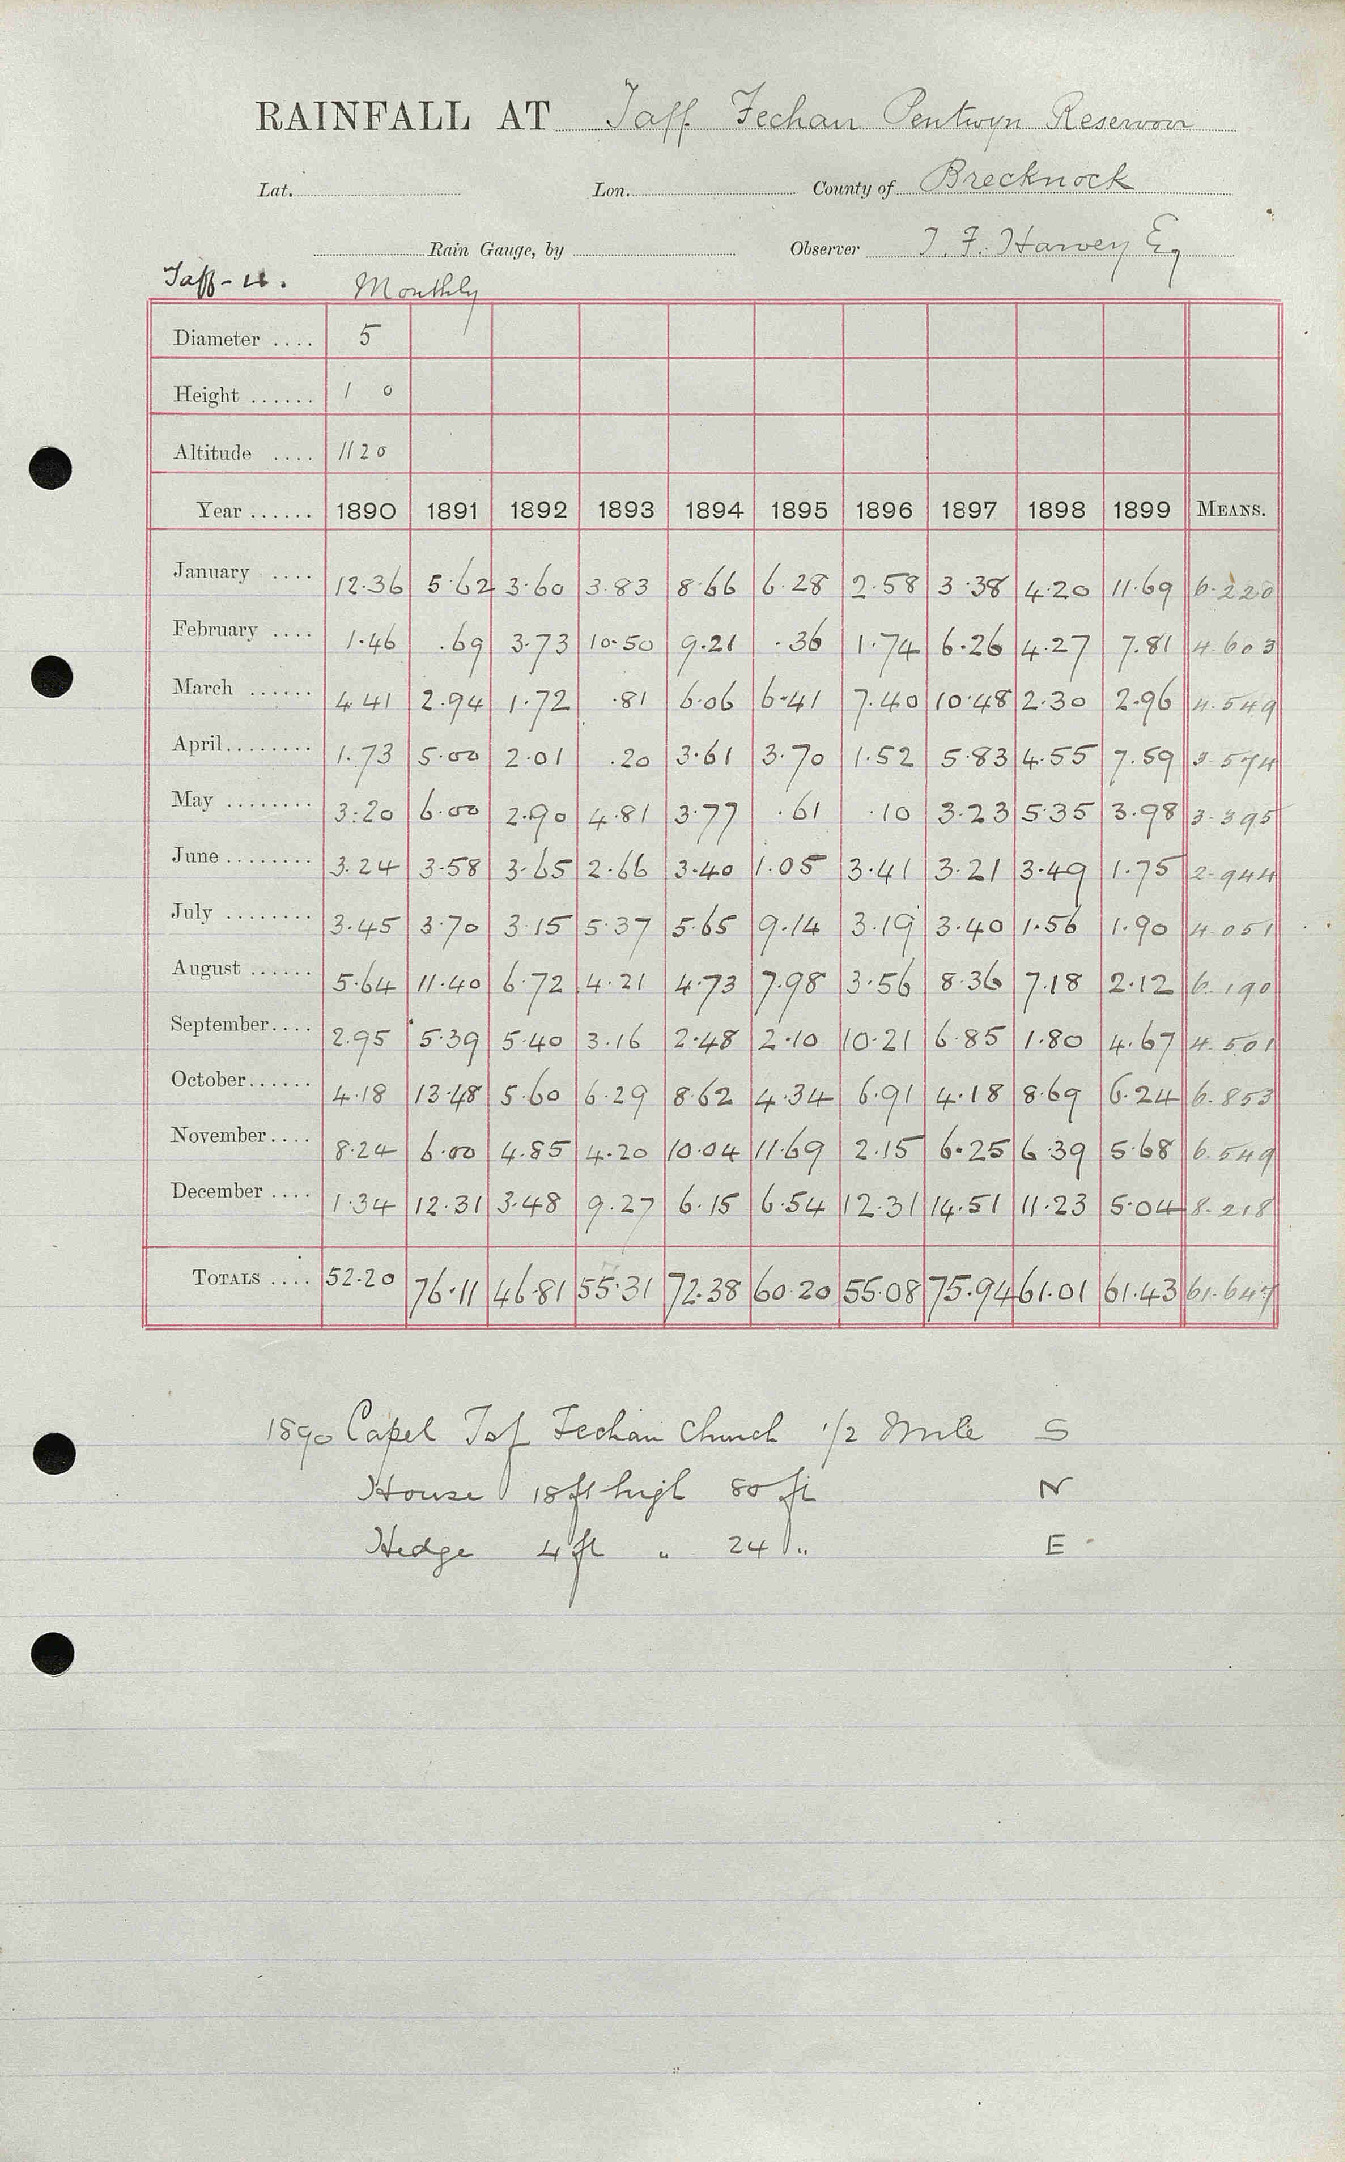 RAINFALL AT Taff Fechan Pentwyn Reservoir
Lat. Lon. County of Brecknock
Rain Gauge, by Observer T. F. Harvey Esq
Taff - 4. Monthly
Diameter .... 5
Height ...... 1 0
Altitude .... 1120
Year ...... 1890 1891 1892 1893 1894 1895 1896 1897 1898 1899 MEANS.
January .... 12.36 5.62 3.60 3.83 8.66 6.28 2.58 3.38 4.20 11.69 6.220
February .... 1.46 .69 3.73 10.50 9.21 .36 1.74 6.26 4.27 7.81 4.603
March ...... 4.41 2.94 1.72 .81 6.06 6.41 7.40 10.48 2.30 2.96 4.549
April........ 1.73 5.00 2.01 .20 3.61 3.70 1.52 5.83 4.55 7.59 3.574
May ........ 3.20 6.00 2.90 4.81 3.77 .61 .10 3.23 5.35 3.98 3.395
June ........ 3.24 3.58 3.65 2.66 3.40 1.05 3.41 3.21 3.49 1.75 2.944
July ........ 3.45 3.70 3.15 5.37 5.65 9.14 3.19 3.40 1.56 1.90 4.051
August ...... 5.64 11.40 6.72 4.21 4.73 7.98 3.56 8.36 7.18 2.12 6.190
September.... 2.95 5.39 5.40 3.16 2.48 2.10 10.21 6.85 1.80 4.67 4.501
October...... 4.18 13.48 5.60 6.29 8.62 4.34 6.91 4.18 8.69 6.24 6.853
November.... 8.24 6.00 4.85 4.20 10.04 11.69 2.15 6.25 6.39 5.68 6.549
December .... 1.34 12.31 3.48 9.27 6.15 6.54 12.31 14.51 11.23 5.04 8.218
TOTALS .... 52.20 76.11 46.81 55.31 72.38 60.20 55.08 75.94 61.01 61.43 61.647
1890 Capel Taf Fechan Church 1/2 Mile S
House 18 ft high 80 ft N
Hedge 4 ft " 24 " E